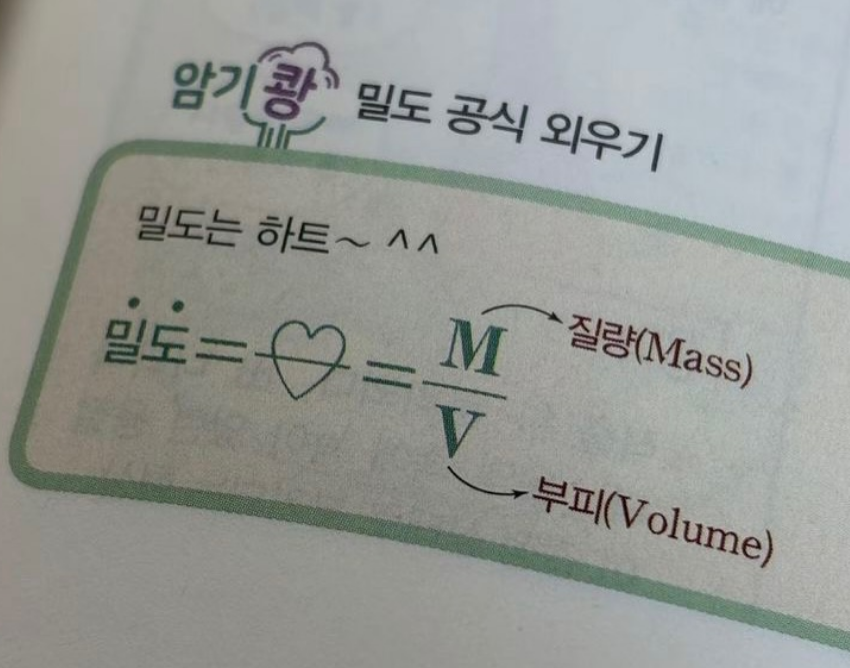 암기쾅 밀도 공식 외우기
밀도는 하트~ ^^
밀도=♡=M/V
질량(Mass)
부피(Volume)